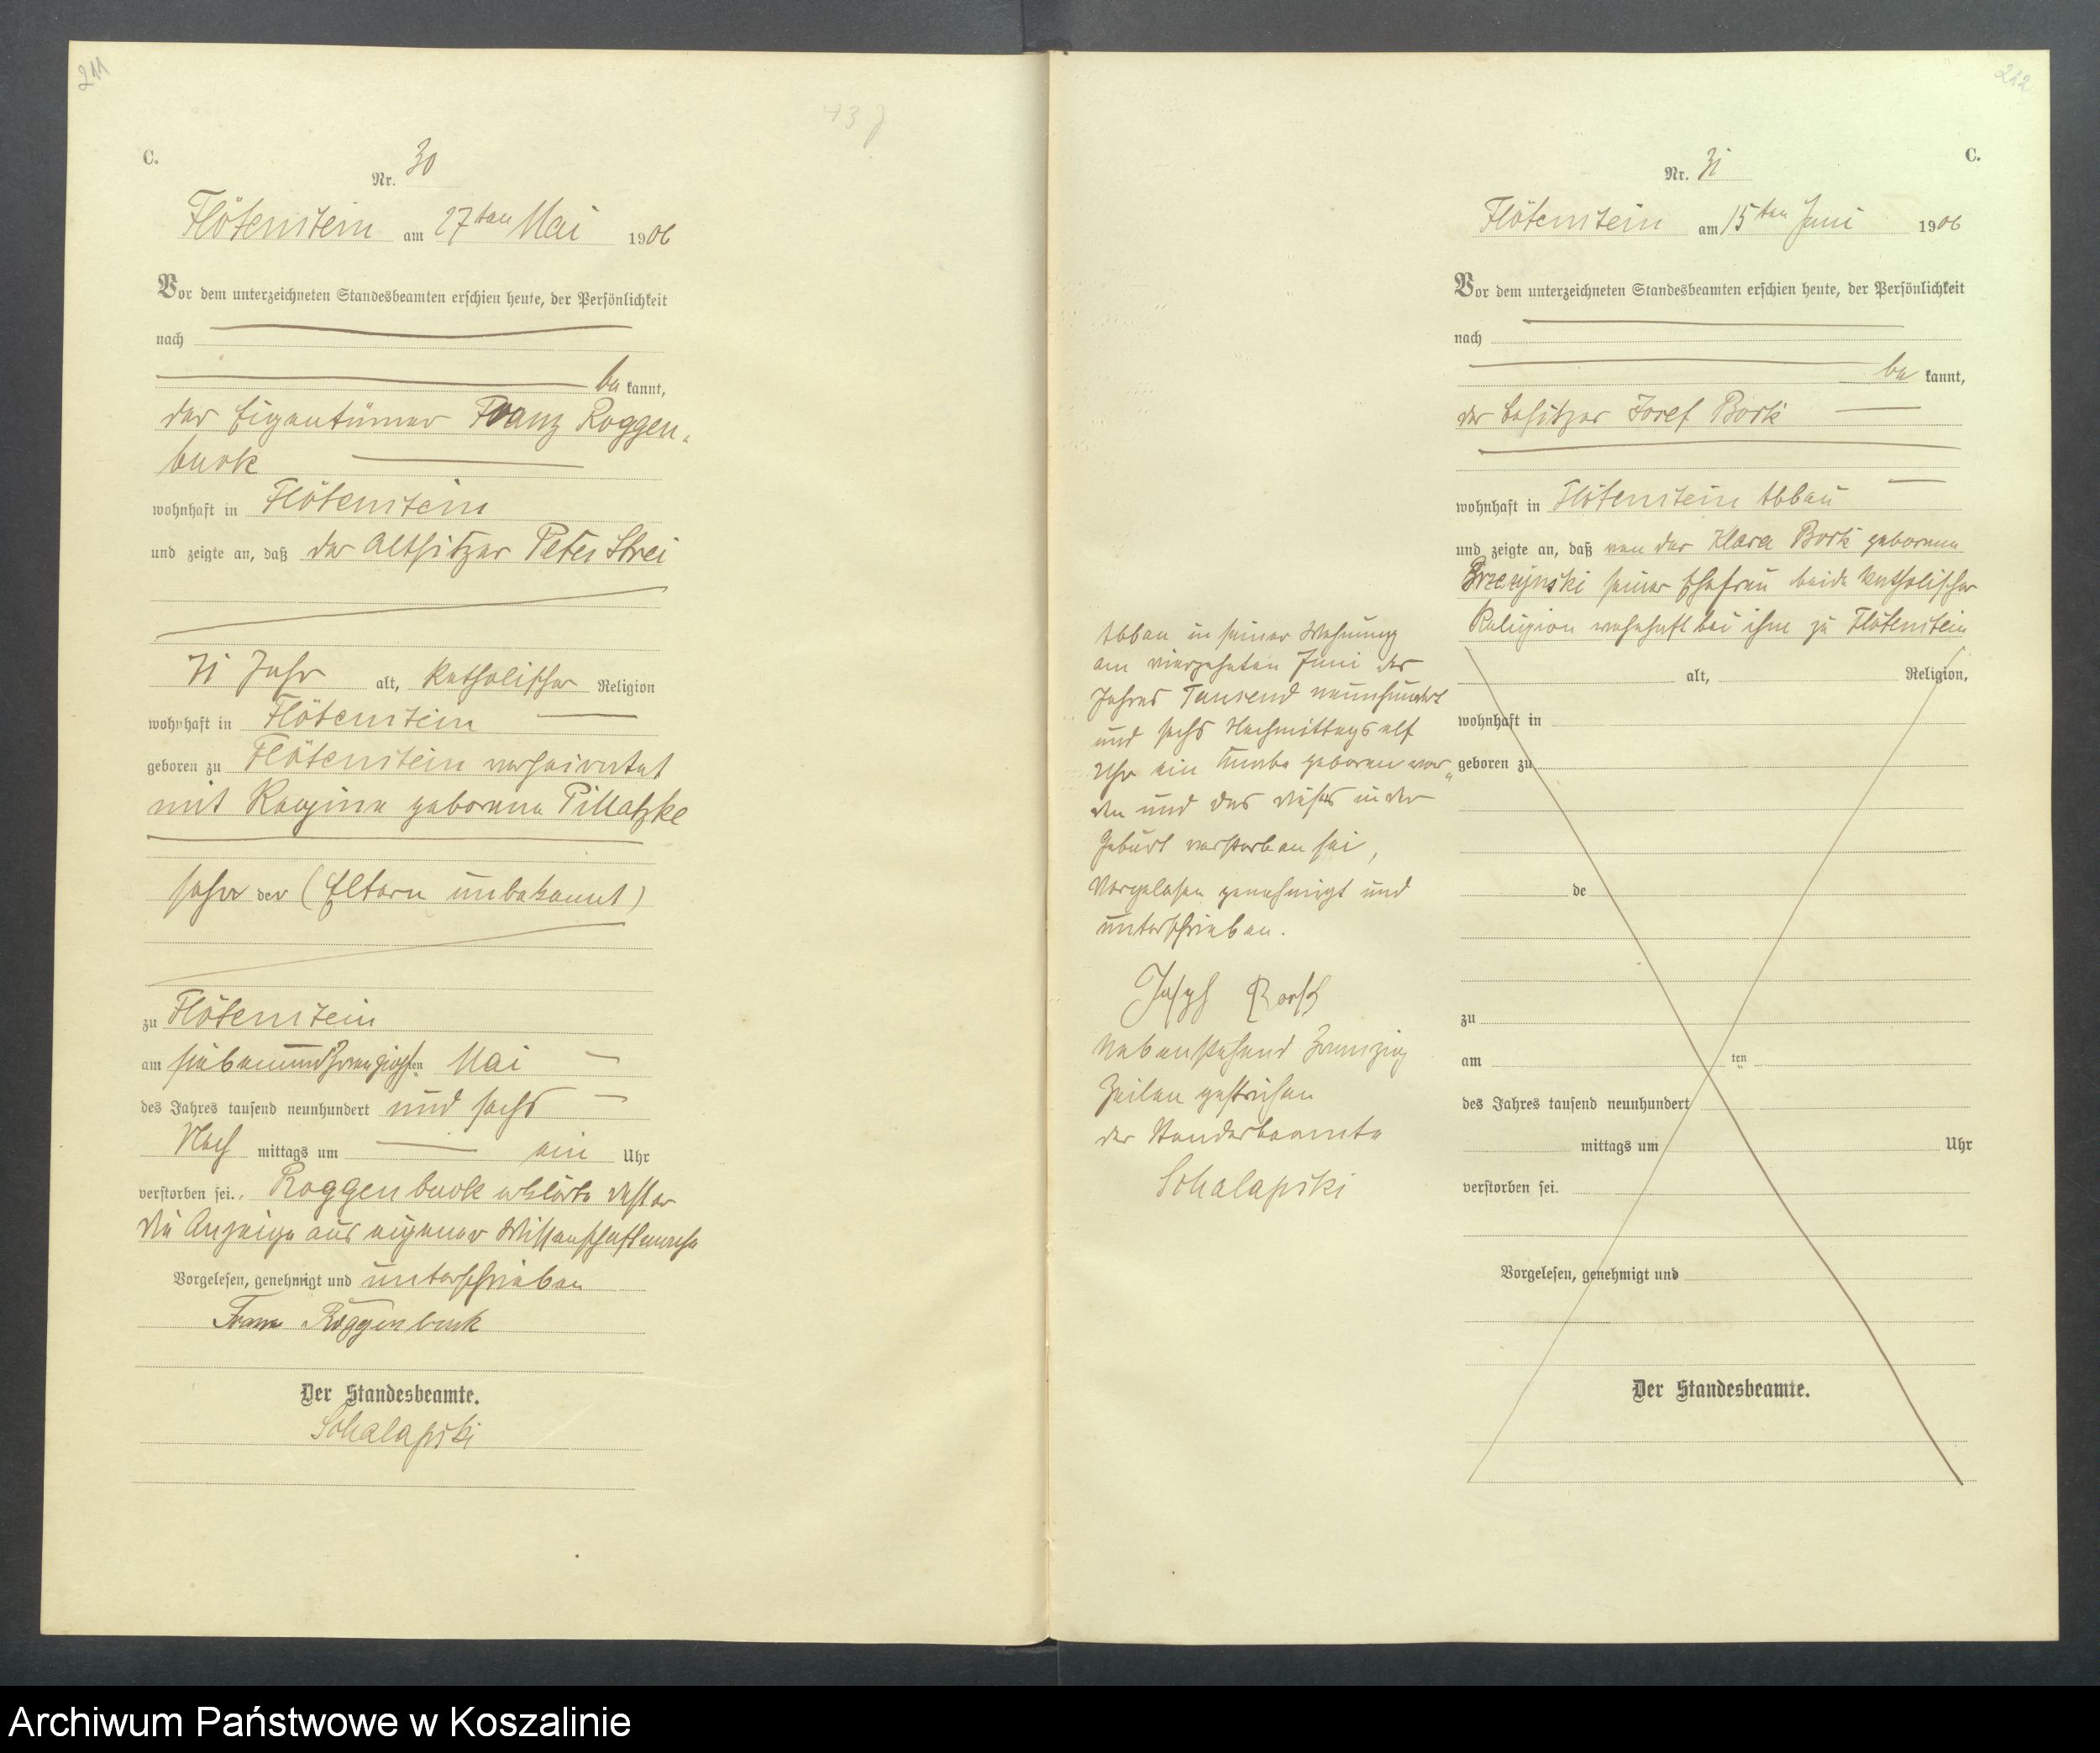 211
437
C.
Nr. 30
Flötenstein am 27ten Mai 1906
Vor dem unterzeichneten Standesbeamten erschien heute, der Persönlichkeit
nach
be kannt,
der Eigentümer Franz Roggen-
buck
wohnhaft in Flötenstein
und zeigte an, daß der Altsitzer Peter Strei
71 Jahr alt, katholischer Religion
wohnhaft in Flötenstein
geboren zu Flötenstein verheiratet
mit Regina geborene Pillatzke
sohn der (Eltern unbekannt)
zu Flötenstein
am siebenundzwanzigsten Mai
des Jahres tausend neunhundert und sechs
Nach mittags um ein Uhr
verstorben sei. Roggenbuck erklärte daß er
die Anzeige aus eigener Wissenschaft mache
Vorgelesen, genehmigt und unterschrieben
Franz Roggenbuck
Der Standesbeamte.
Schalapski
212
C.
Nr. 31
Flötenstein am 15ten Juni 1906
Vor dem unterzeichneten Standesbeamten erschien heute, der Persönlichkeit
nach
be kannt,
der Besitzer Josef Bork
wohnhaft in Flötenstein Abbau
und zeigte an, daß von der Klara Bork geborene
Brzezynski seiner Ehefrau beide katholischer
Religion wohnhaft bei ihm zu Flötenstein
alt, Religion,
wohnhaft in
geboren zu
de
zu
am ten
des Jahres tausend neunhundert
mittags um Uhr
verstorben sei.
Vorgelesen, genehmigt und
Der Standesbeamte.
Abbau in seiner Wohnung
am vierzehnten Juni des
Jahres Tausend neunhundert
und sechs Nachmittags elf
Uhr ein Knabe geboren wor-
den und das dieses in der
Geburt verstorben sei,
Vorgelesen genehmigt und
unterschrieben.
Joseph Bork
Nebenstehend Zwanzig
Zeilen gestrichen
der Standesbeamte
Schalapski
Archiwum Państwowe w Koszalinie